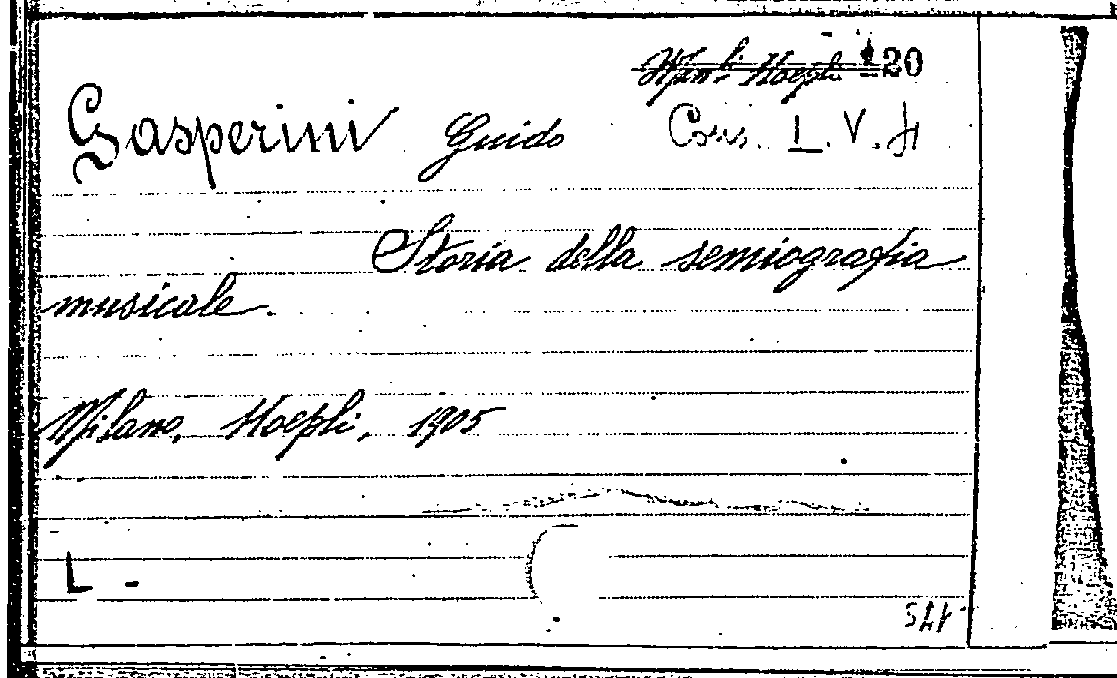 Man.li Hoepli 120
Gasperini Guido Cons. L. V. 
Storia della semiografia
musicale.
Milano, Hoepli, 1905
L -